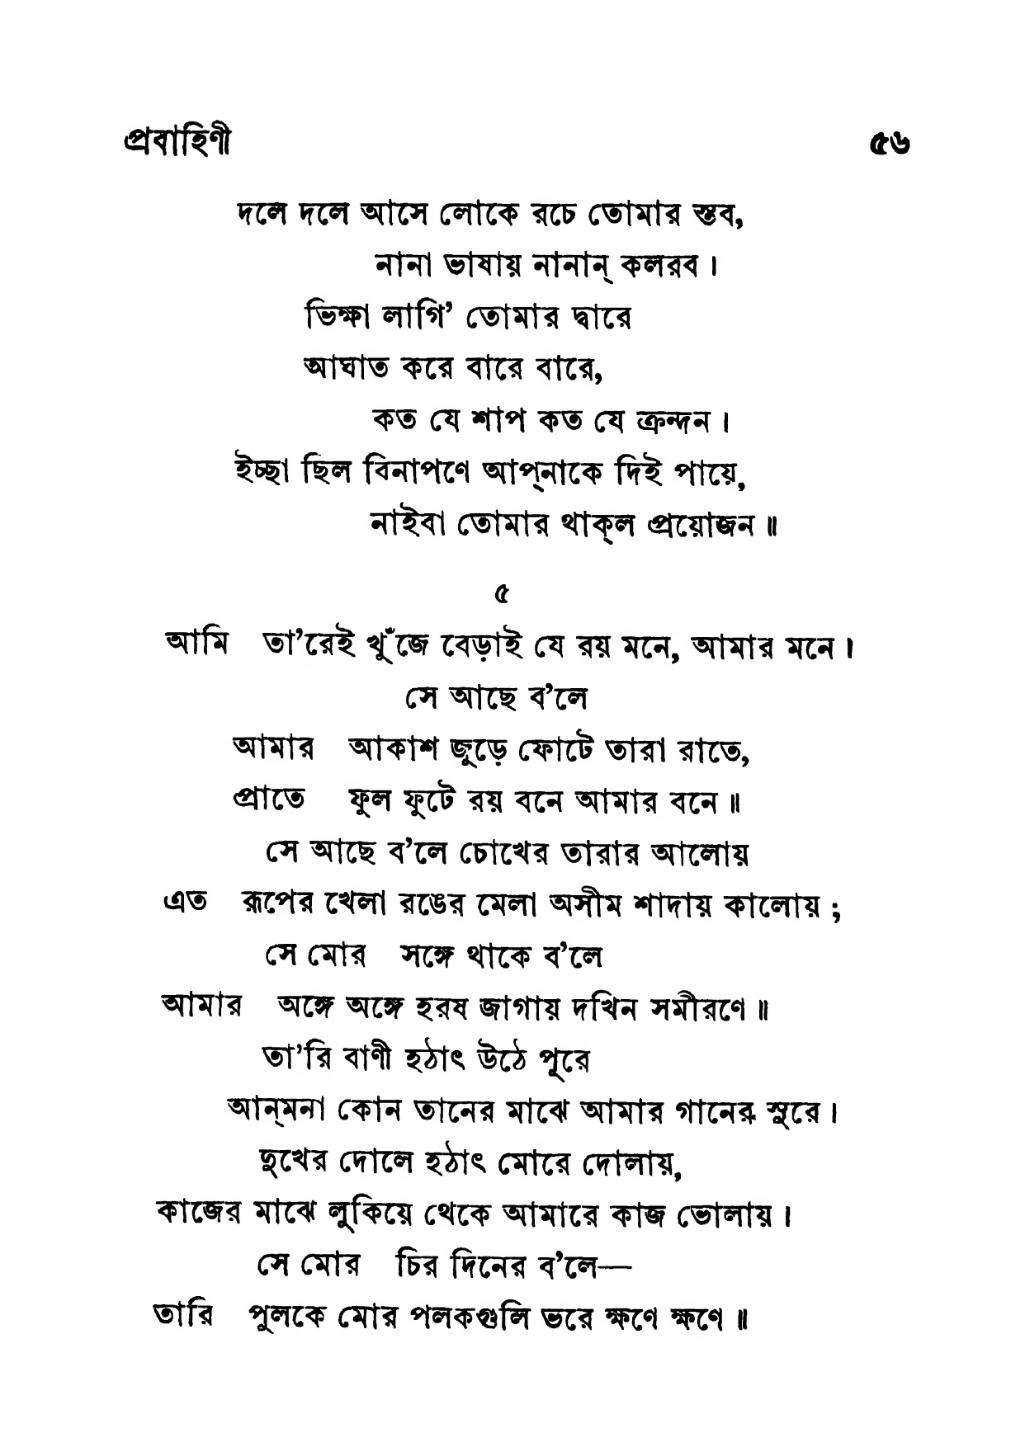 প্রবাহিণী ৫৬
দলে দলে আসে লোকে রচে তোমার স্তব,
নানা ভাষায় নানান্ কলরব।
ভিক্ষা লাগি’ তোমার দ্বারে
আঘাত করে বারে বারে,
কত যে শাপ কত যে ক্রন্দন।
ইচ্ছা ছিল বিনাপণে আপ্‌নাকে দিই পায়ে,
নাইবা তোমার থাক্‌ল প্রয়োজন॥
৫
আমি তা’রেই খুঁজে বেড়াই যে রয় মনে, আমার মনে।
সে আছে ব’লে
আমার আকাশ জুড়ে ফোটে তারা রাতে,
প্রাতে ফুল ফুটে রয় বনে আমার বনে॥
সে আছে ব’লে চোখের তারার আলোয়
এত রূপের খেলা রঙের মেলা অসীম শাদায় কালোয়;
সে মোর সঙ্গে থাকে ব’লে
আমার অঙ্গে অঙ্গে হরষ জাগায় দখিন সমীরণে॥
তা’রি বাণী হঠাৎ উঠে পূরে
আন্‌মনা কোন তানের মাঝে আমার গানের সুরে।
দুখের দোলে হঠাৎ মোরে দোলায়,
কাজের মাঝে লুকিয়ে থেকে আমারে কাজ ভোলায়।
সে মোর চির দিনের ব’লে—
তারি পুলকে মোর পলকগুলি ভরে ক্ষণে ক্ষণে॥